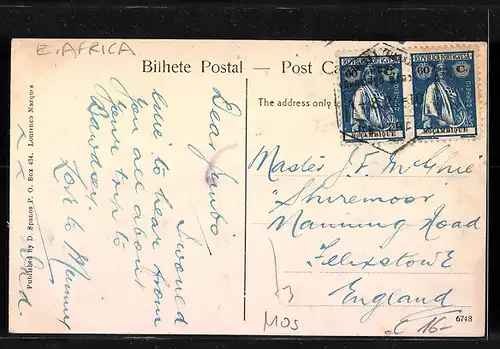 E. AFRICA
Bilhete Postal — Post Ca
The address only to
REPUBLICA PORTUGUESA
60 C.
CORREIO
MOÇAMBIQUE
REPUBLICA PORTUGUESA
60 C.
CORREIO
MOÇAMBIQUE
Dear Jumbo
I would
love to hear from
you all about
your trip to
Bawdsey.
Love to Mummy
x x
Dad.
Master J. F. McGhie
Shiremoor
Manning Road
Felixstowe
England
Published by D. Spanos P. O. Box 434, Lourenco Marques
MOS
€ 16-
6748